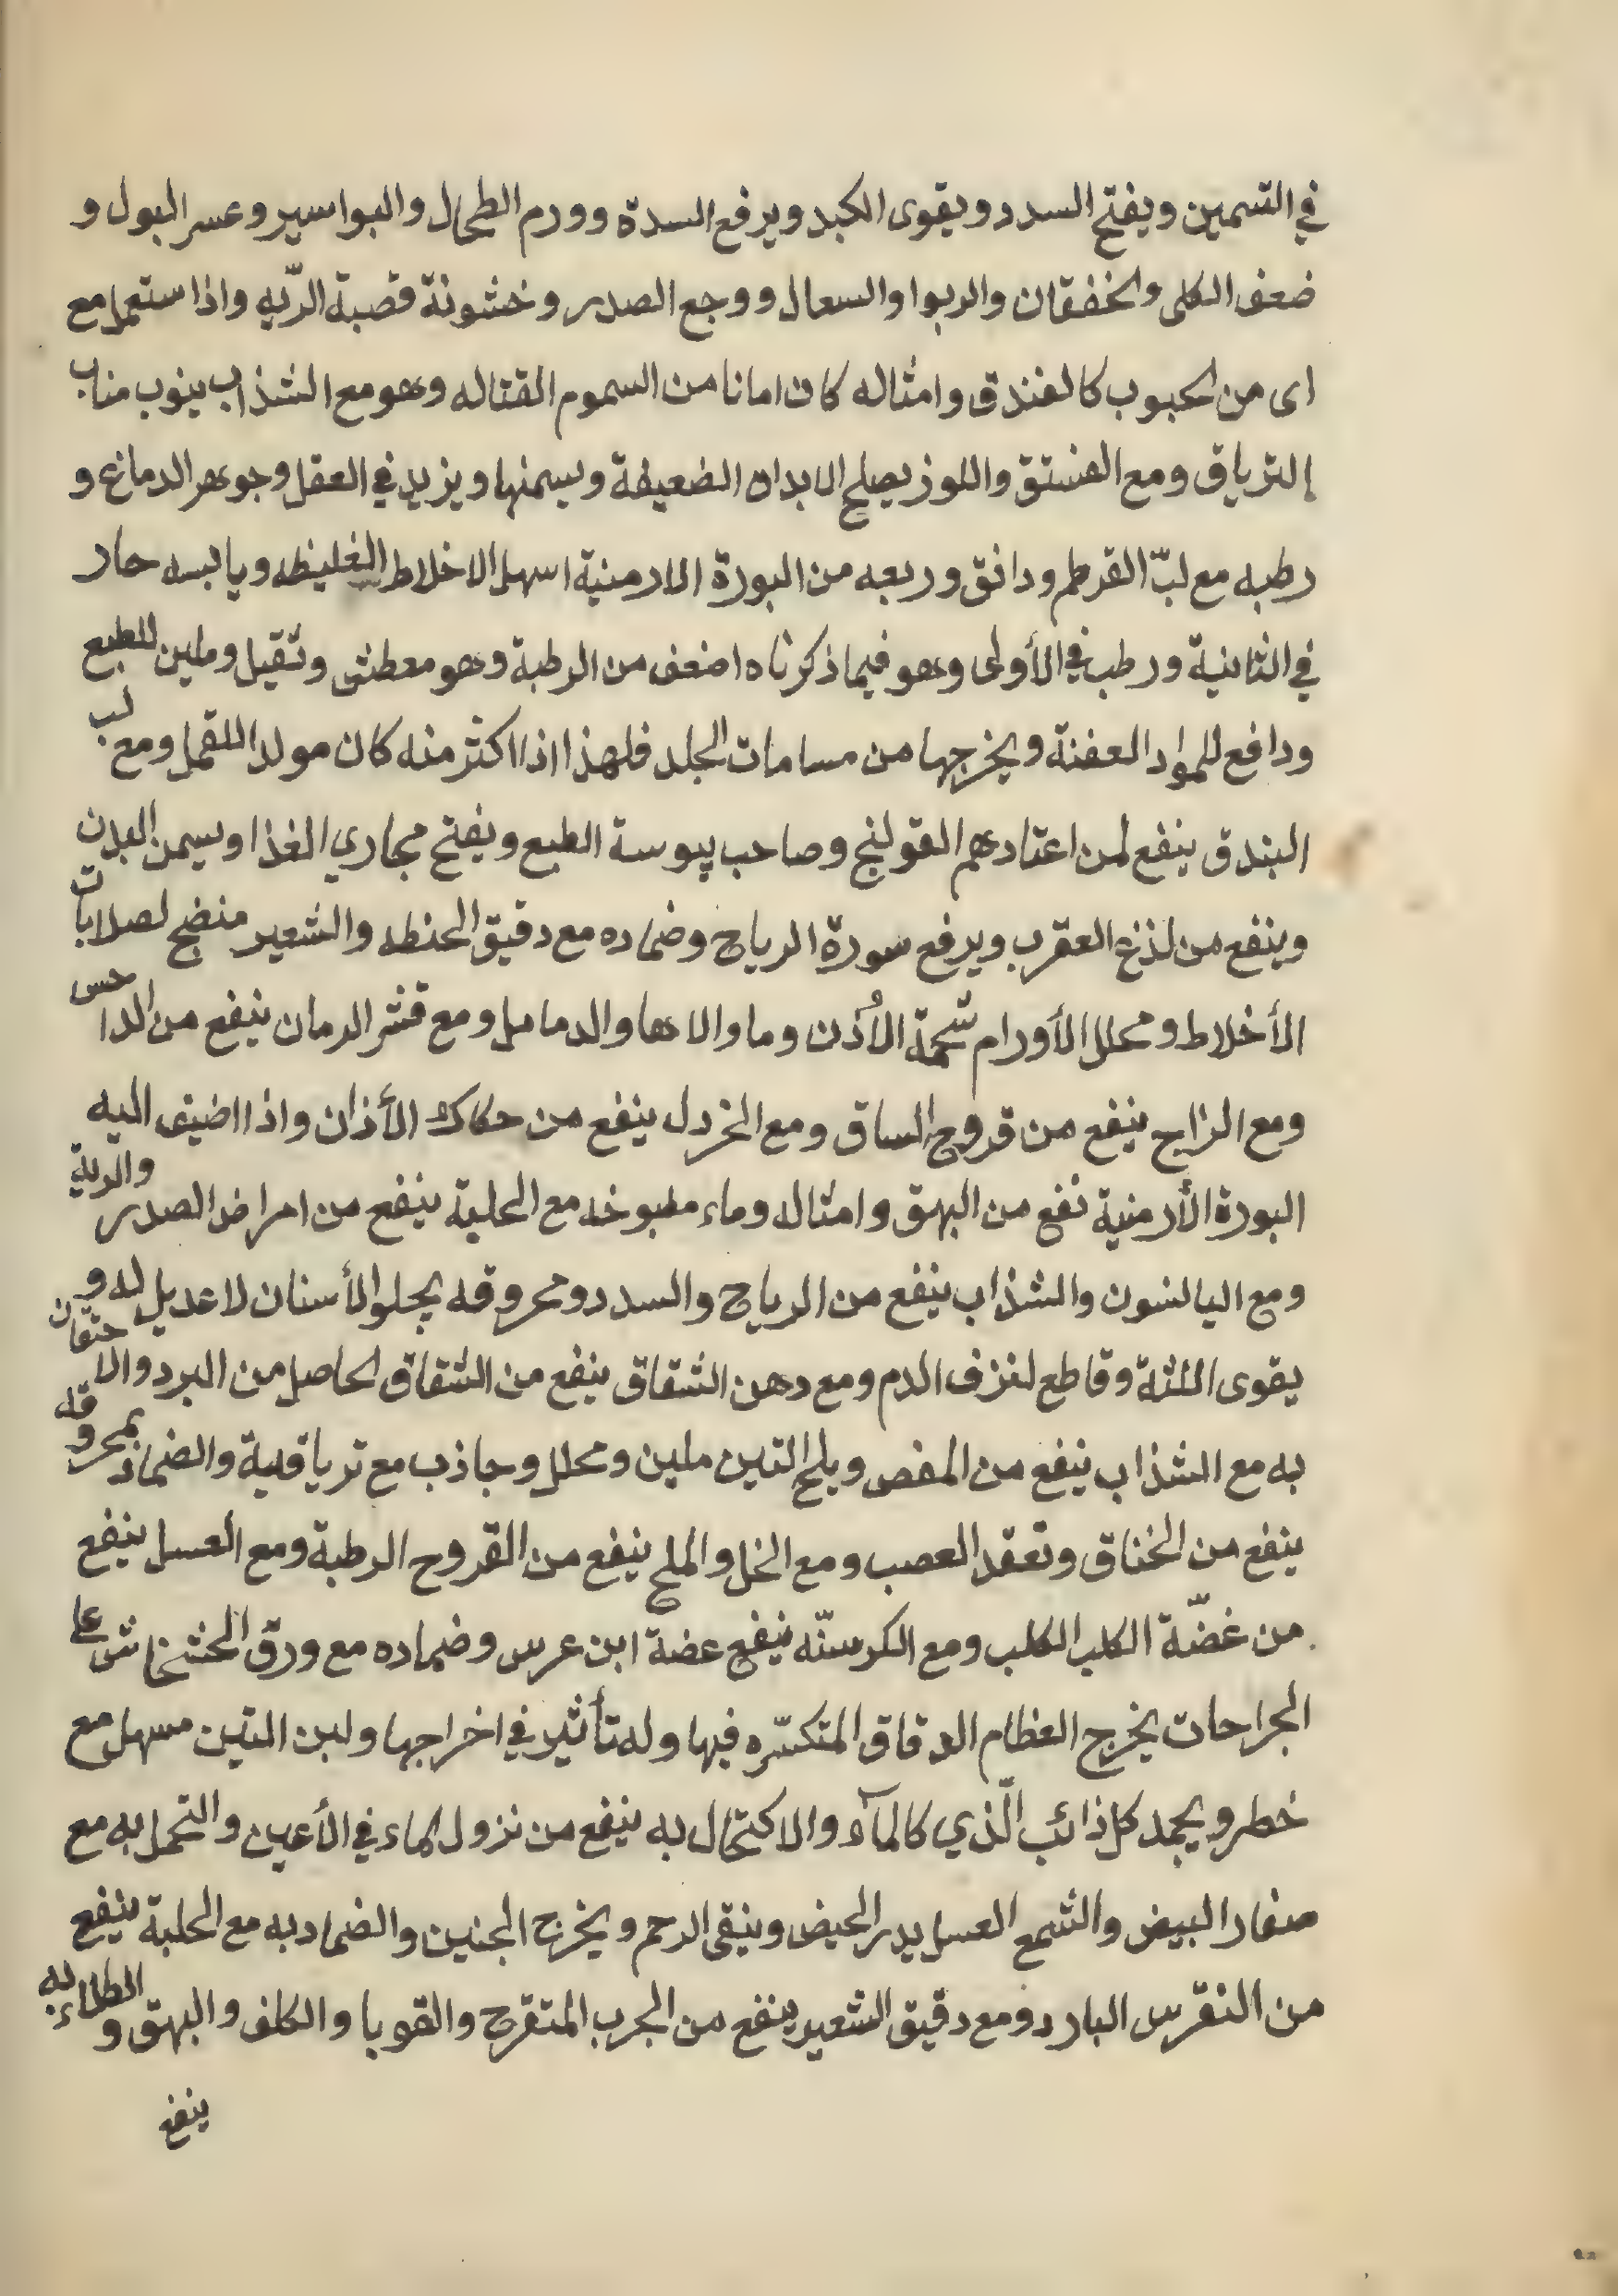 في التسمين ويفتح السدد ويقوى الكبد ويرفع السدة وورم الطحال والبواسير وعسر البول و
ضعف الكلى والخفقان والربوا والسعال ووجع الصدر وخشونة قصبة الرّيه واذا ستعمل مع
اى من الحبوب كالفندق وامثاله كان امانا من السموم القتاله وهو مع الشذاب ينوب مناب
الترياق ومع الفستق واللوز يصلح الابدان الضعيفة ويسمنها ويزيد في العقل وجوهر الدماغ و
رطبه مع لبّ القرطم ودانق وربعه من البورة الارمنية اسهل الاخلاط الغليظه ويابسه حار
في الثانية ورطب في الأولى وهو فيما ذكرناه اضعف من الرطبة وهو معطش وثقيل وملين للطبع
ودافع للمواد العفنة ويخرجها من مسامات الجلد فلهذا اذا اكثر منه كان مولدا للقمل ومع لب
البندق ينفع لمن اعتادهم القولنج وصاحب يبوسة الطبع ويفتح مجاري الغذا ويسمن البدن
وينفع من لذغ العقرب ويرفع سورة الرياح وضماده مع دقيق الحنطه والشعير منضج لصلابات
الأخلاط ومحلل الأورام شحمة الأُذن وما والاها والدمامل ومع قشر الرمان ينفع من الداحس
ومع الزاج ينفع من قروح الساق ومع الخردل ينفع من حكاك الأذان واذا اضيف اليه
البورة الأرمنية نفع من البهق وامثاله وماء مطبوخه مع الحلبة ينفع من امراض الصدر والرية
ومع اليالنسون والشذاب ينفع من الرياح والسدد ومحروقه يجلوا الأسنان لا عديل له و
يقوى اللثة وقاطع لنزف الدم ومع دهن الشقاق ينفع من الشقاق الحاصل من البرد والاحتقان
به مع الشذاب ينفع من المغص وبلح التين ملين ومحلل وجاذب مع ترياقية والضماد بمحروقه
ينفع من الخناق وتعقد العصب ومع الخل والملح ينفع من القروح الرطبة ومع العسل ينفع
من غضّة الكلب الكلب ومع الكرسنّه ينفع عضة ابن عرس وضماده مع ورق الخشخاش على
الجراحات يخرج العظام الدقاق المتكسّره فيها وله تأثير في اخراجها ولبن التين مسهل مع
خطر ويجمد كل ذائب الّذي كالمآء والاكتحال به ينفع من نزول الماء في الأعين والتحمل به مع
صفار البيض والشمع العسل يدر الحيض وينقى الرحم ويخرج الجنين والضماد به مع الحلبة ينفع
من النقرس البارد ومع دقيق الشعير ينفع من الجرب المتقرح والقوبا والكلف والبهق والطلاء به
ينفع